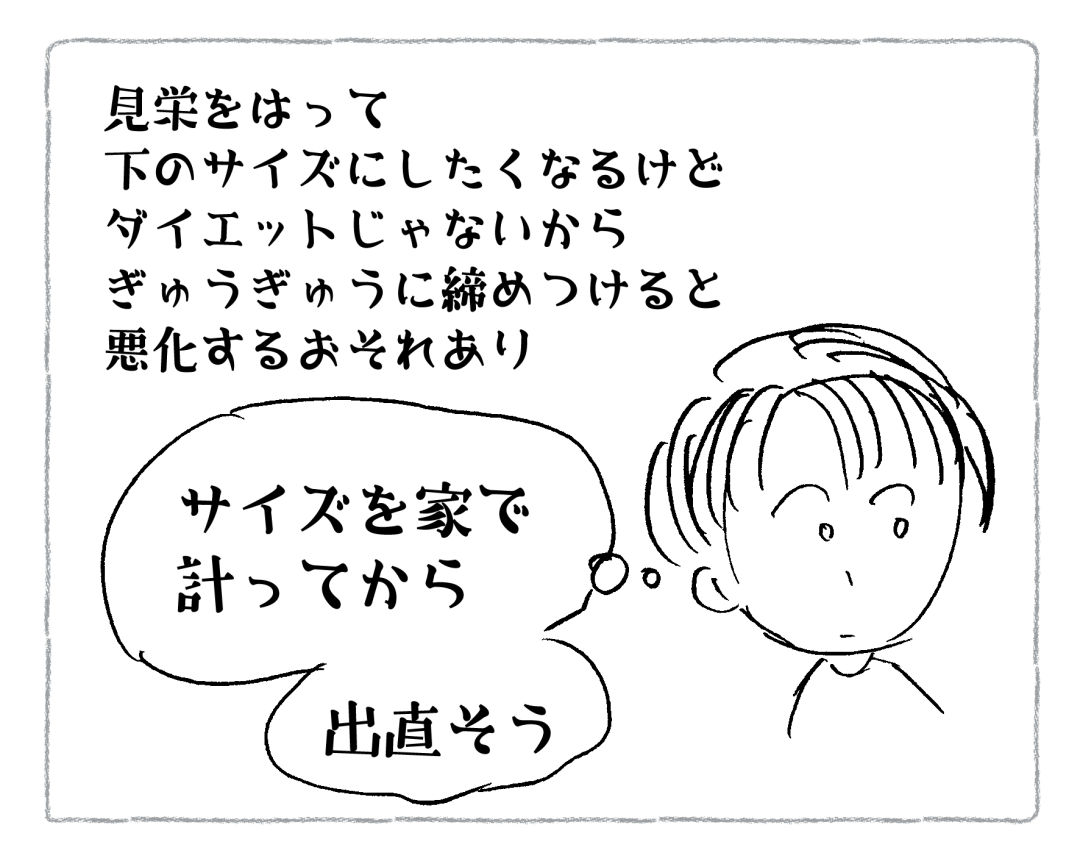 見栄をはって
下のサイズにしたくなるけど
ダイエットじゃないから
ぎゅうぎゅうに締めつけると
悪化するおそれあり
サイズを家で
計ってから
出直そう